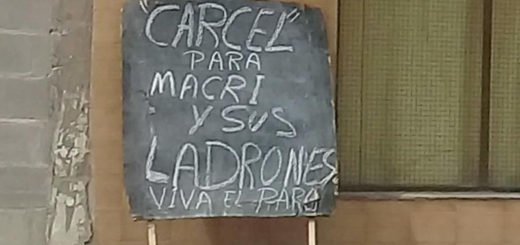 "CARCEL"
PARA
MACRI
Y SUS
LADRONES
VIVA EL PARO